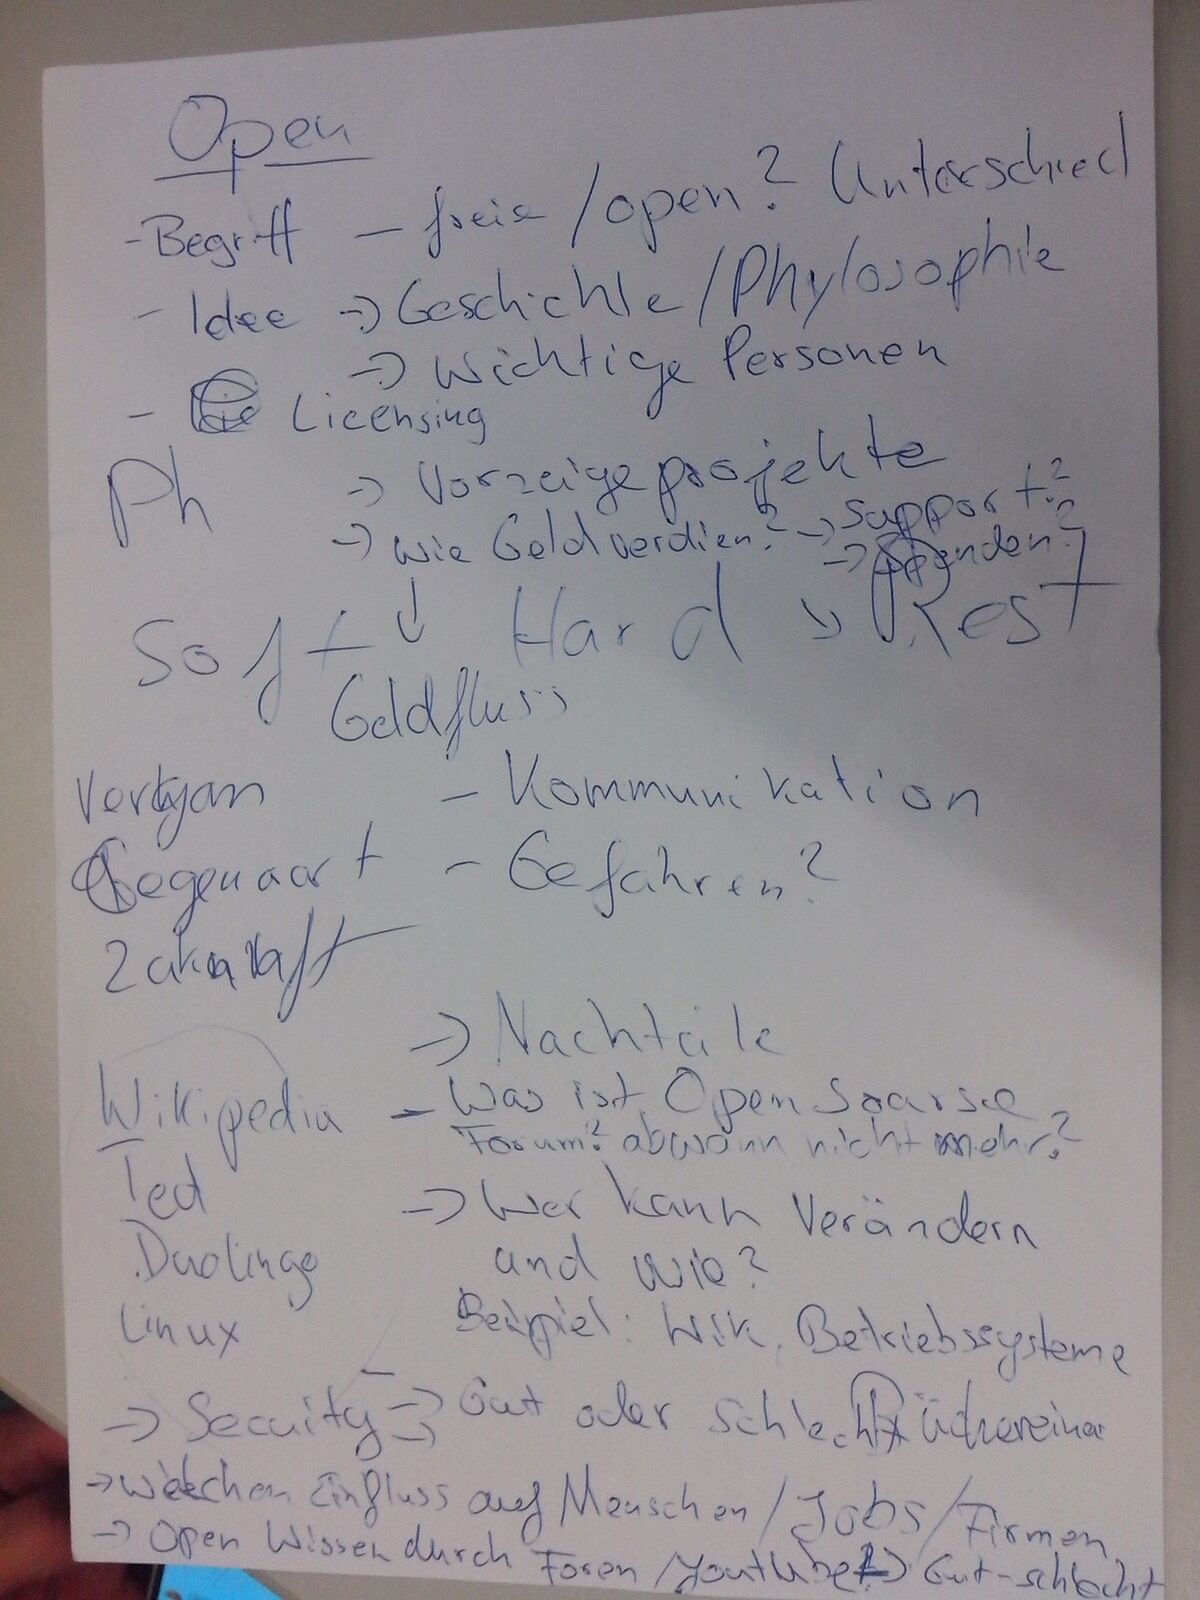 Open
- Begriff - freie / open? Unterschied
- Idee -> Geschichte / Phylosophie
-> Wichtige Personen
- Licensing
Ph -> Vorzeigeprojekte
-> Wie Geld verdien? -> Support?
-> Spenden?
Soft Hard Rest
Geldfluss
- Kommunikation
Gegenwart - Gefahren?
-> Nachteile
Wikipedia - Was ist Open
Forum? abwann nicht mehr?
Ted -> Wer kann Verändern
Duolingo und wie?
Linux Beispiel: Wik, Betriebssysteme
-> Secuity -> Gut oder schlecht
-> Welchen Einfluss auf Menschen / Jobs / Firmen
-> Open Wissen durch Foren / Youtube? -> Gut-schlecht